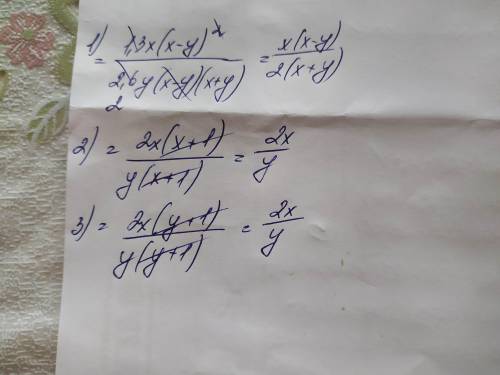 1) = 1,3x(x-y)² / 2,6y(x-y)(x+y) = x(x-y) / 2(x+y)
2
2) = 2x(x+1) / y(x+1) = 2x / y
3) = 2x(y+1) / y(y+1) = 2x / y